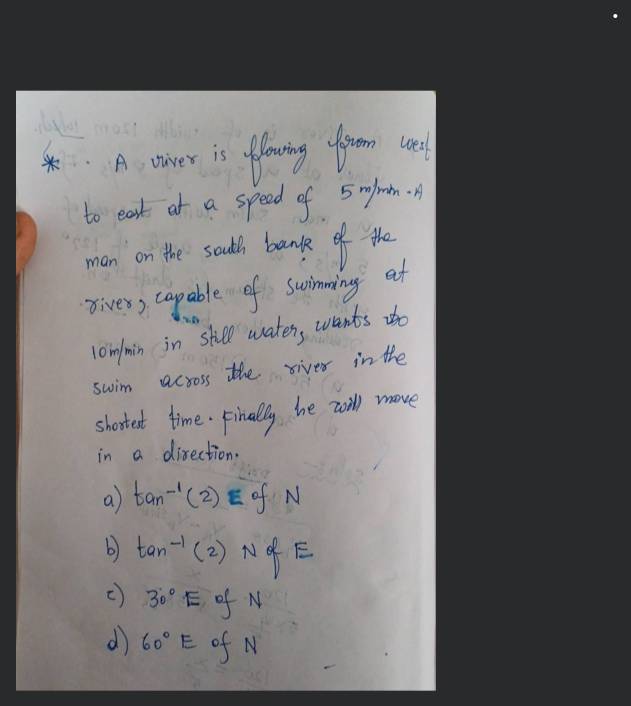 * . A river is flowing from west
to east at a speed of 5 m/min . A
man on the south bank of the
river, capable of swimming at
10m/min in still water, wants to
swim across the river in the
shortest time. Finally he will move
in a direction.
a) tan⁻¹ (2) E of N
b) tan⁻¹ (2) N of E
c) 30° E of N
d) 60° E of N